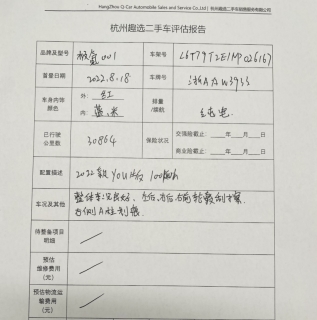 HangZhou Q Car Automobile Sales and Service Co.,Ltd | 杭州趣选二手车销售服务有限公司
杭州趣选二手车评估报告
品牌及型号 极氪001 车架号 L6T79T2E1MP026167
首登日期 2022.8.18 车牌号 浙AAW3933
车身内饰颜色 外: 红 内: 蓝、米 排量/续航 纯电
已行驶公里数 30864 保险状况 交强险截止: ____年____月____日
商业险截止: ____年____月____日
配置描述 2022款 YOU版 100kwh
车况及其他 整体车况良好、左后、右后、右前轮毂剐擦、
右侧A柱划痕
待整备项目明细
预估维修费用(元)
预估物流运输费用(元)